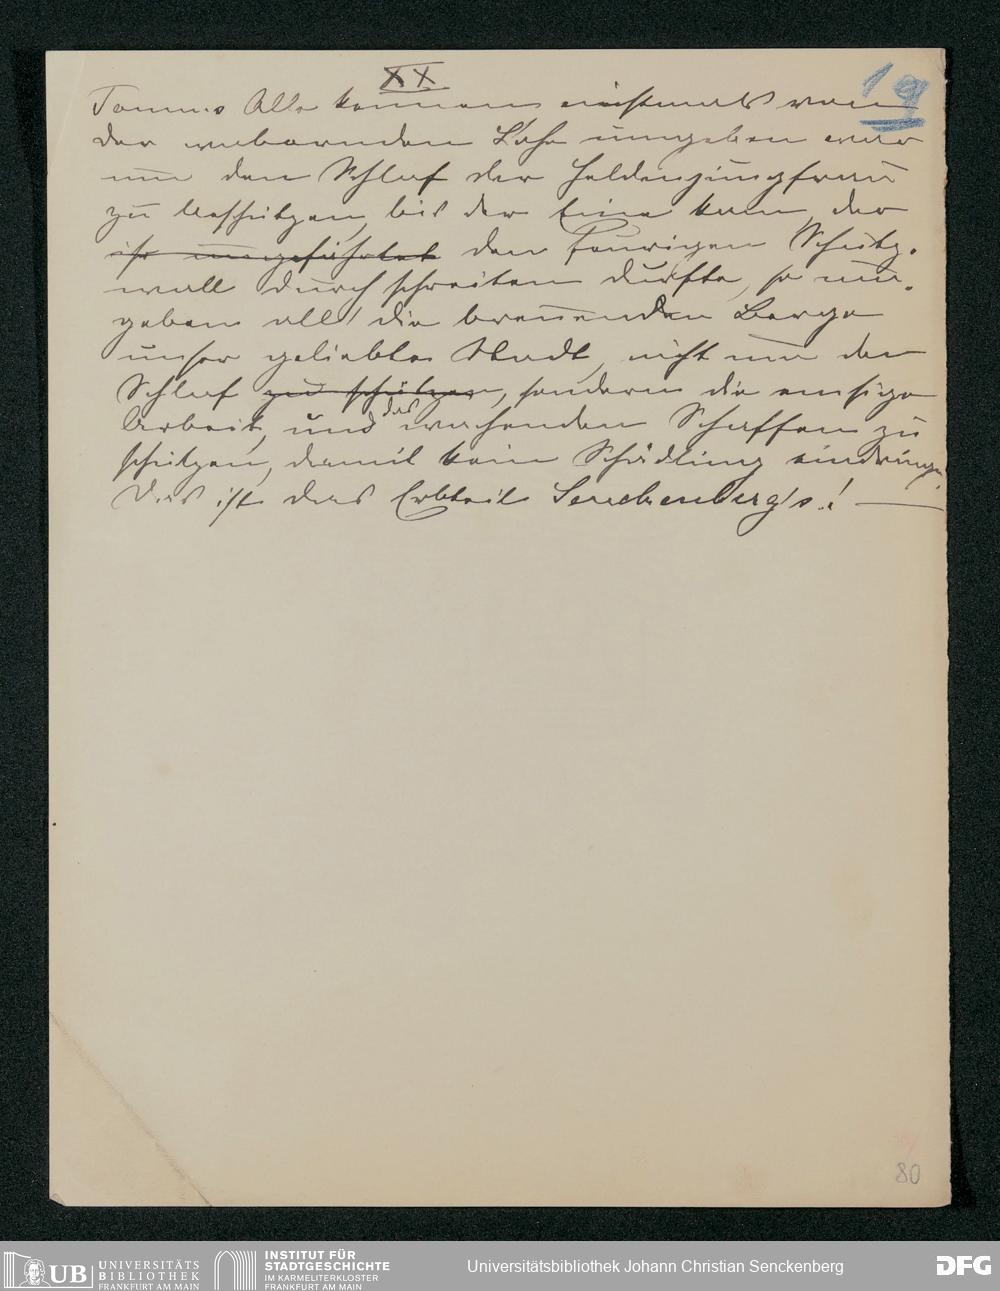 XX
19
Taunus Alle kennen einstmals von
der wabernden Lohe umgeben war
um den Schlaf der Heldenjungfrau
zu beschützen, bis der Eine kam, der
ihr ungefährdet den feurigen Schutz-
wall durchschreiten durfte, so um-
geben all die brennenden Berge
unsre geliebte Stadt, nicht um den
Schlaf zu schützen, sondern die emsige
Arbeit, und das wachenden Schaffen zu
schützen, damit kein Schädling eindringe.
Das ist das Erbteil Senckenberg's! —
80
UB UNIVERSITÄTS
BIBLIOTHEK
FRANKFURT AM MAIN
INSTITUT FÜR
STADTGESCHICHTE
IM KARMELITERKLOSTER
FRANKFURT AM MAIN
Universitätsbibliothek Johann Christian Senckenberg
DFG